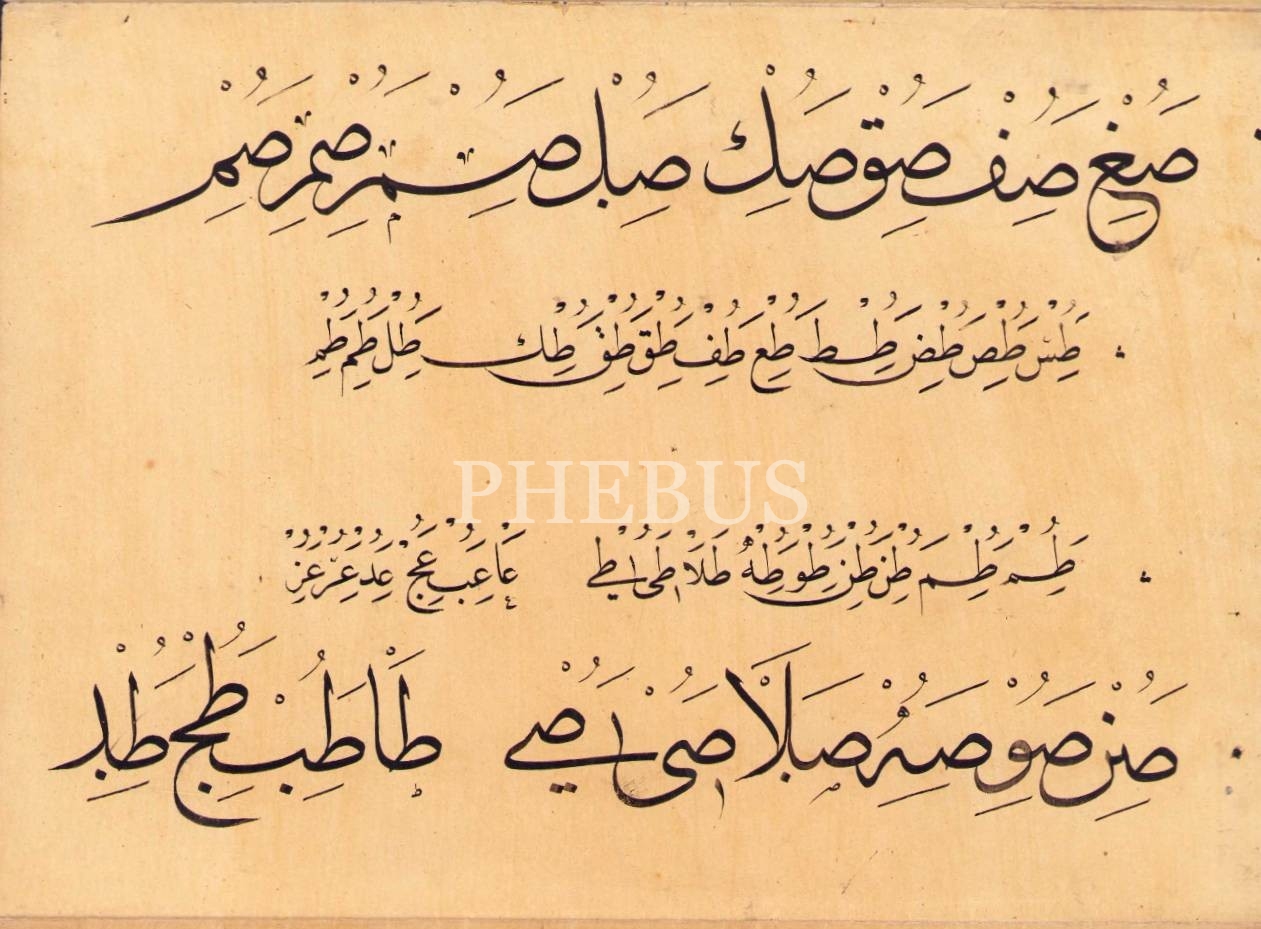 صغ صف صق صك صل صم صم صم
طس طص طض طط طع طف طق طق طك طل طم طم
PHEBUS
طم طم طن طن طو طه طلا طى طے عا عب عج عد عر عز
صن صو صه صلا صى صے طا طب طج طد